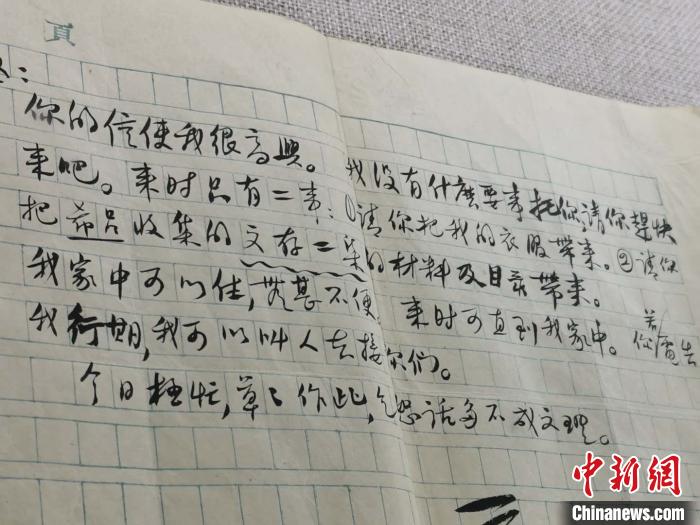 頁
你的信使我很高興。我没有什麽要事托你,請你趕快
来吧。来时只有二事:①請你把我的衣服帶来。②請你
把 收集的文存二集的材料及目录帶来。
我家中可以住,無甚不便。来时可直到我家中。若你電告
我行期,我可以叫人去接你们。
今日極忙,草々作此,乞恕話多不成文理。
中新网
Chinanews.com